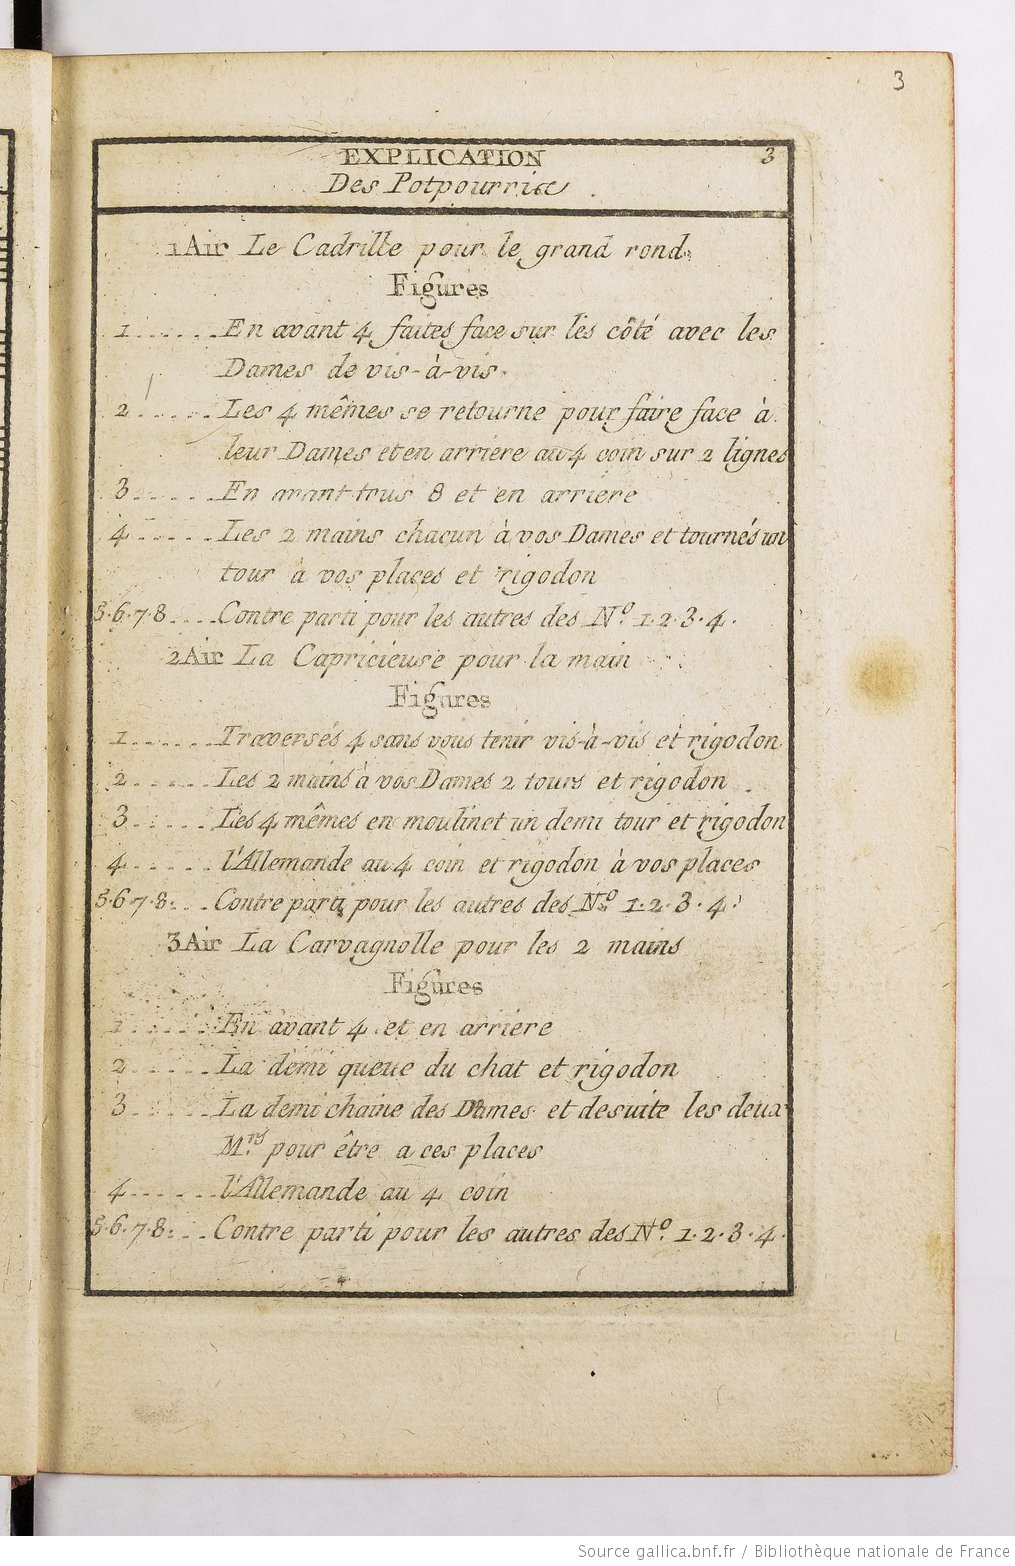 3
EXPLICATION 3
Des Potpourris
1 Air Le Cadrille pour le grand rond.
Figures
1......En avant 4 faites face sur lès côté avec les
Dames de vis-à-vis.
2......Les 4 mêmes se retourne pour faire face à
leur Dames et en arriere au 4 coin sur 2 lignes
3......En avant tous 8 et en arriere
4......Les 2 mains chacun à vos Dames et tournés un
tour à vos places et rigodon
5.6.7.8....Contre parti pour les autres des No. 1.2.3.4.
2 Air La Capricieuse pour la main
Figures
1......Traversés 4 sans vous tenir vis-à-vis et rigodon
2......Les 2 mains à vos Dames 2 tours et rigodon.
3......Les 4 mêmes en moulinet un demi tour et rigodon
4......l'Allemande au 4 coin et rigodon à vos places
5.6.7.8...Contre parti pour les autres des No. 1.2.3.4.
3 Air La Carvagnolle pour les 2 mains
Figures
1......En avant 4 et en arriére
2......La demi queue du chat et rigodon
3......La demi chaine des Dames et desuite les deux
M.rs pour être a ces places
4......l'Allemande au 4 coin
5.6.7.8...Contre parti pour les autres des No. 1.2.3.4.
Source gallica.bnf.fr / Bibliothèque nationale de France